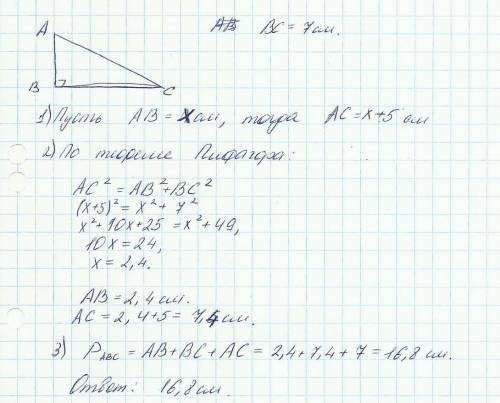 A
B
C
BC = 7 см.
1) Пусть AB = x см, тогда AC = x + 5 см
2) По теореме Пифагора:
AC² = AB² + BC²
(x+5)² = x² + 7²
x² + 10x + 25 = x² + 49,
10x = 24,
x = 2,4.
AB = 2,4 см.
AC = 2,4 + 5 = 7,4 см.
3) P ABC = AB + BC + AC = 2,4 + 7,4 + 7 = 16,8 см.
Ответ: 16,8 см.